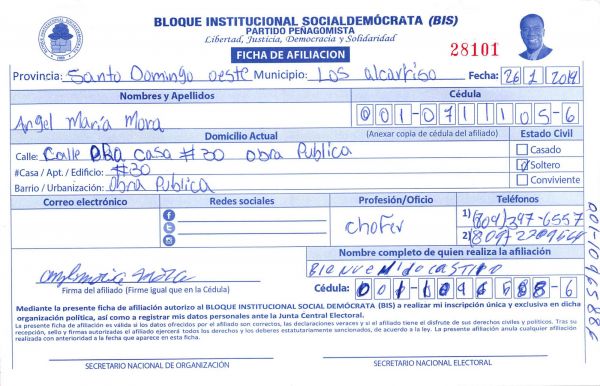 BLOQUE INSTITUCIONAL SOCIALDEMÓCRATA (BIS)
PARTIDO PEÑAGOMISTA
Libertad, Justicia, Democracia y Solidaridad
FICHA DE AFILIACION
28101
Provincia: Santo Domingo oeste Municipio: Los alcarriso Fecha: 26 1 2019
Nombres y Apellidos
Cédula
Angel María Mora
001-0711105-6
Domicilio Actual (Anexar copia de cédula del afiliado)
Estado Civil
Calle: Calle casa #30 obra Publica
Casado
#Casa / Apt. / Edificio: #30
Soltero
Barrio / Urbanización: obra Publica
Conviviente
Correo electrónico
Redes sociales
Profesión/Oficio
Teléfonos
chofer
1) (809) 347-6557
2) (809)
Nombre completo de quien realiza la afiliación
Bienvenido castillo
Firma del afiliado (Firme igual que en la Cédula)
Cédula: 001-1096588-6
001-1096588-6
Mediante la presente ficha de afiliación autorizo al BLOQUE INSTITUCIONAL SOCIAL DEMÓCRATA (BIS) a realizar mi inscripción única y exclusiva en dicha
organización política, así como a registrar mis datos personales ante la Junta Central Electoral.
La presente ficha de afiliación es válida si los datos ofrecidos por el afiliado son correctos, las declaraciones veraces y si el afiliado tiene el disfrute de sus derechos civiles y políticos. Tras su
recepción, sello y firmas autorizadas el afiliado ejercerá todos los derechos y los deberes estatutariamente sancionados, de acuerdo a la ley. La presente afiliación anula cualquier afiliación
realizada con anterioridad a la fecha que aparece en esta ficha.
SECRETARIO NACIONAL DE ORGANIZACIÓN
SECRETARIO NACIONAL ELECTORAL